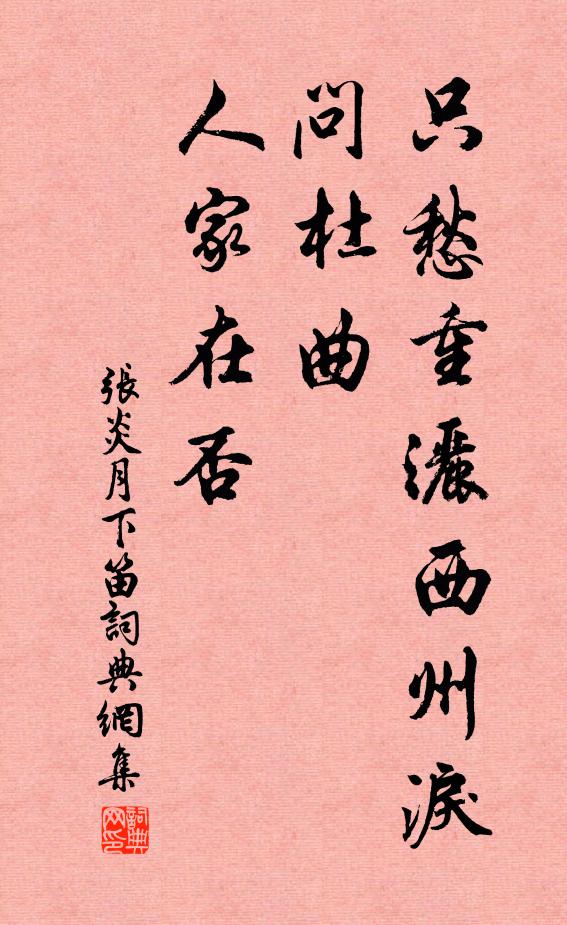 只愁重灑西州淚
問杜曲
人家在否
張炎月下笛詞典網集
詞典
网印